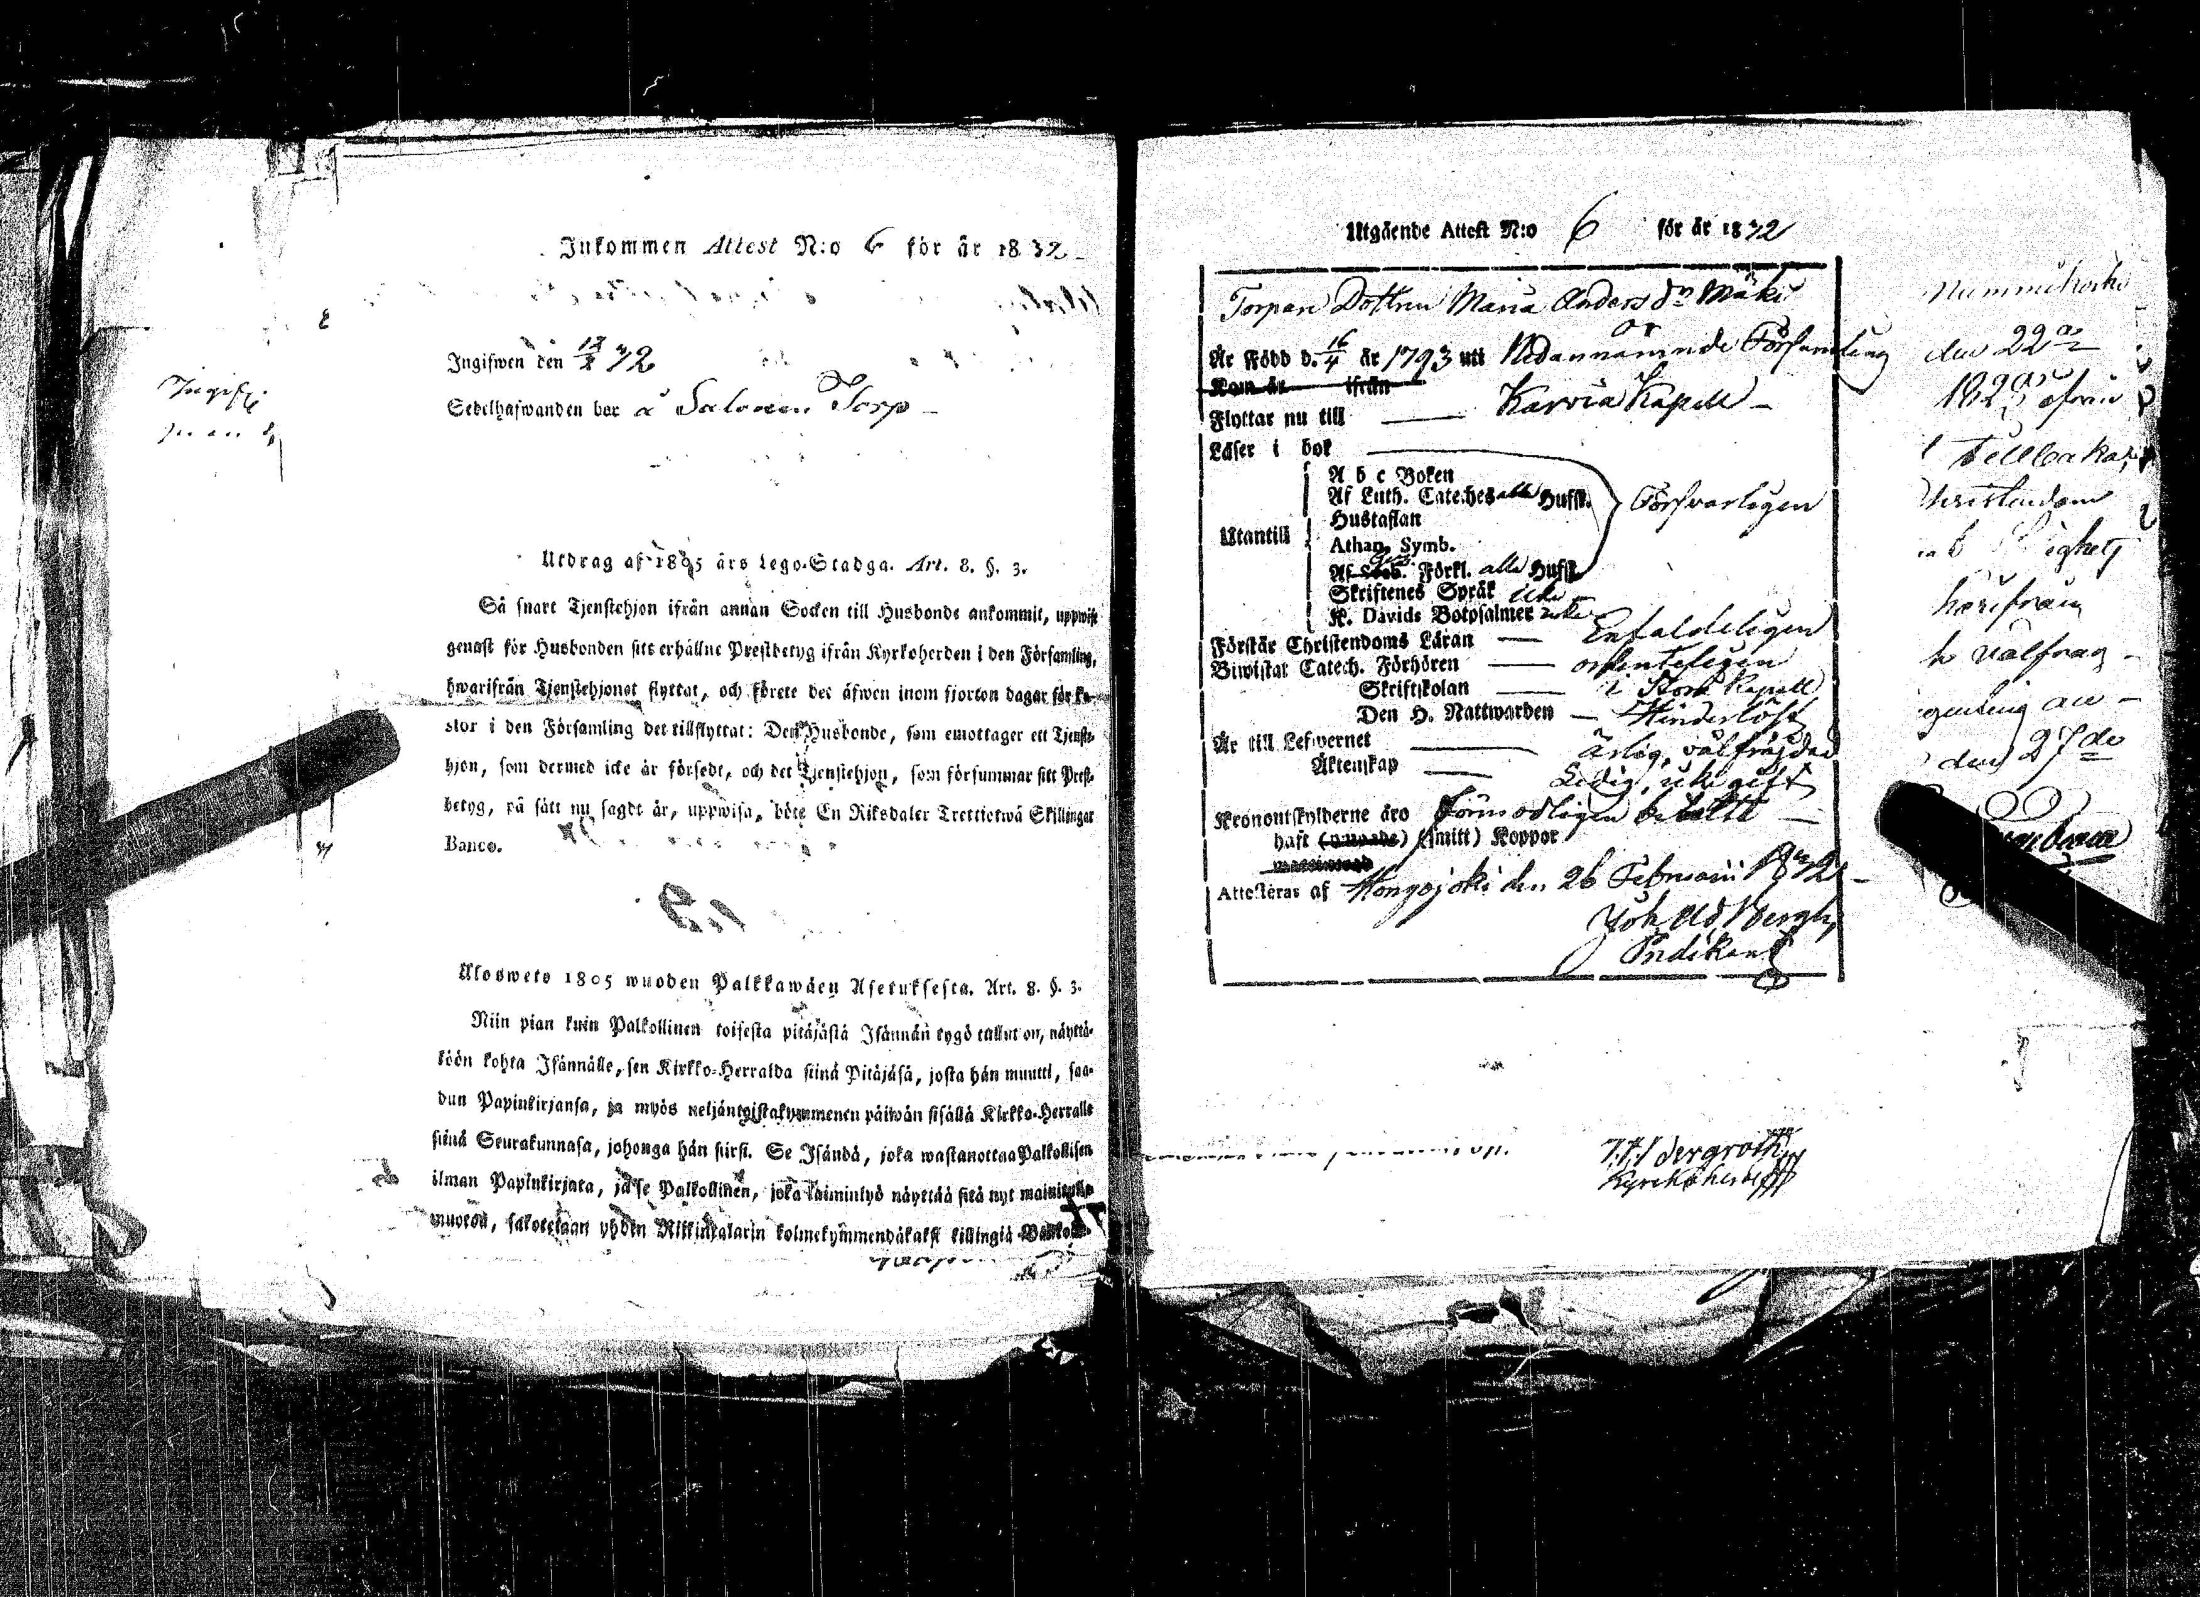 Inkommen Attest N:o 6 för år 1832
Ingifwen den 32
Sedelhafwanden bor å Salonen Torp
Utdrag af 1805 års Lego-Stadga. Art. 8. §. 3.
Så snart Tjenstehjon ifrån annan Socken till Husbonde ankommit, uppwise
genast för Husbonden sitt erhållne Prestbetyg ifrån Kyrkoherden i den Församling,
hwarifrån Tjenstehjonet flyttat, och förete det äfwen inom fjorton dagar för Pa-
stor i den Församling det tillflyttat: Den Husbonde, som emottager ett Tjenste-
hjon, som dermed icke är försedt, och det Tjenstehjon, som försummar sitt Prest-
betyg, på sått nu sagdt är, uppwisa, böte En Riksdaler Trettiotwå Skillingar
Banco.
Uloswets 1805 wuoden Palkkawäen Asetuksesta. Art. 8. §. 3.
Niin pian kuin Palkollinen toisesta pitäjästä Isännän tygö tullut on, näyttä-
köön kohta Isännälle, sen Kirkko-Herralda siinä Pitäjäsä, josta hän muutti, saa-
dun Papinkirjansa, ja myös neljäntoistakymmenen päiwän sisällä Kirkko-Herralle
siinä Seurakunnasa, johonga hän siirsi. Se Isändä, joka wastanottaa Palkollisen
ilman Papinkirjata, ja se Palkollinen, joka laiminlyö näyttää sitä nyt mainitulla
muotoa, sakotetaan yhden Riikintalarin kolmekymmendäkaksi killingiä
Utgående Attest N:o 6 för år 1832
Torpare Dottren Maria Anders dr Mäki
Är Född d. 16/4 år 1793 uti Nedannämnde Församling
Kom år ifrån
Flyttar nu till Karvia Kapell
Läser i bok
A b c Boken
Af Luth. Cateches alla Hufst. Försvarligen
Hustaflan
Utantill
Athan. Symb.
Förkl. alla Hufst.
Skriftenes Språk icke
K. Davids Botpsalmer icke
Förstår Christendoms Läran Enfaldeligen
Biwistat Catech. Förhören ordenteligen
Skriftskolan i Stora Kapell
Den H. Nattwarden Hinderlöst
Är till Lefwernet ärlig, välfräjdad
Äktenskap Ledig, icke gift
Kronoutskylderne äro förmodligen betaltt
haft (smitt) Koppor
Attesteras af Hongojoki den 26 Februarii 1832
Joh. Ad. Bergh,
Predikant
Kyrkoherde
Nummikoski
den 22
ifrån
Christendom
härifrån
den 27de